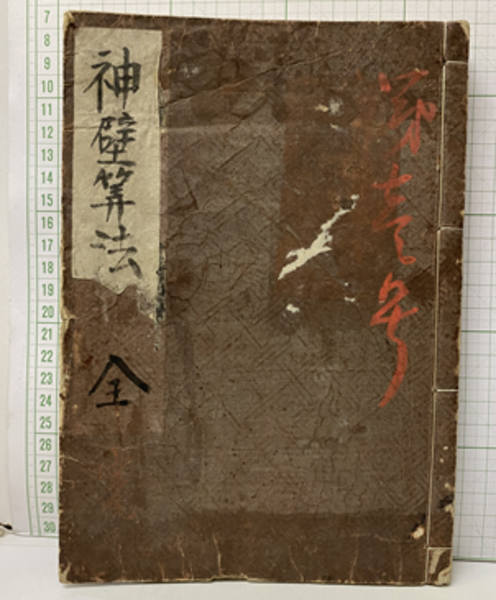 第壱号
神壁算法
全
7
8
9
10
11
12
13
14
15
16
17
18
19
20
21
22
23
24
25
26
27
28
29
30